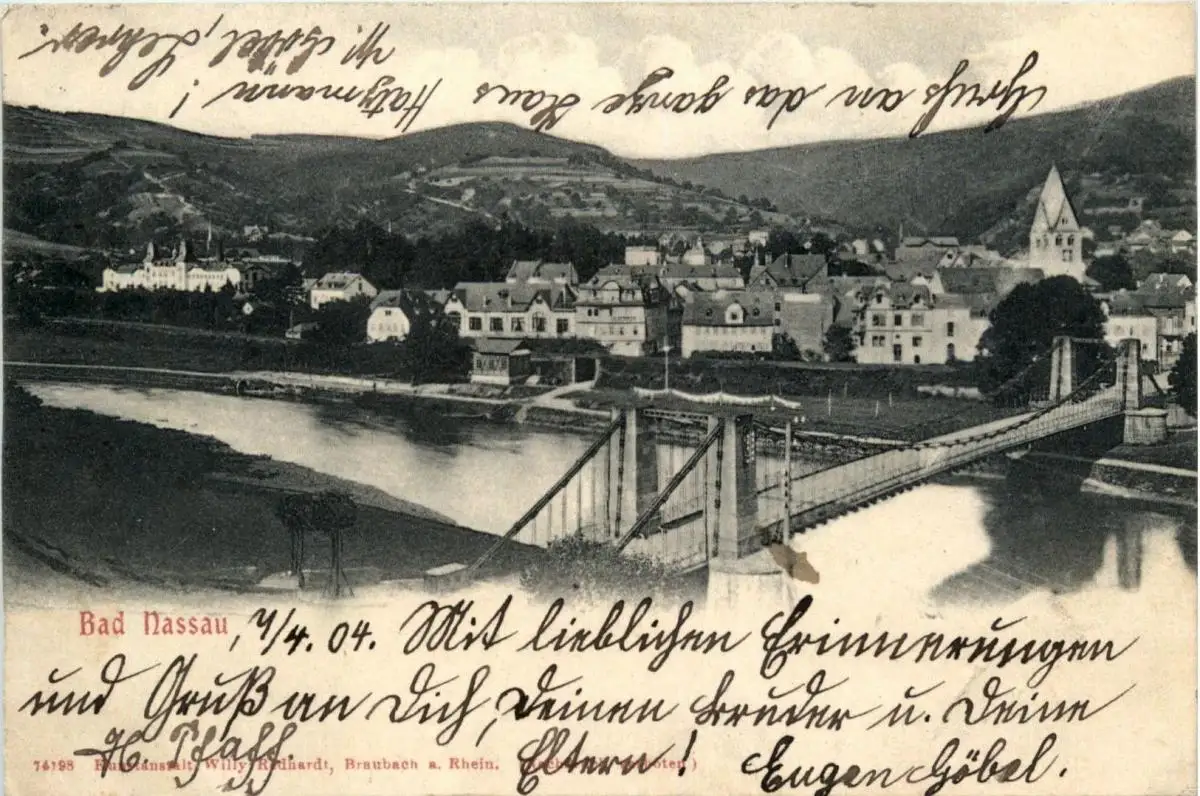 Gruß an das ganze Haus Hatzmann!
W. Göbel, Lehrer.
Bad Nassau, 4/4. 04. Mit lieblichen Erinnerungen
und Gruß an Dich, Deinen Bruder u. Deine
H. Pfaff. Eltern! Eugen Göbel.
Kunstanstalt Willy Redhardt, Braubach a. Rhein.